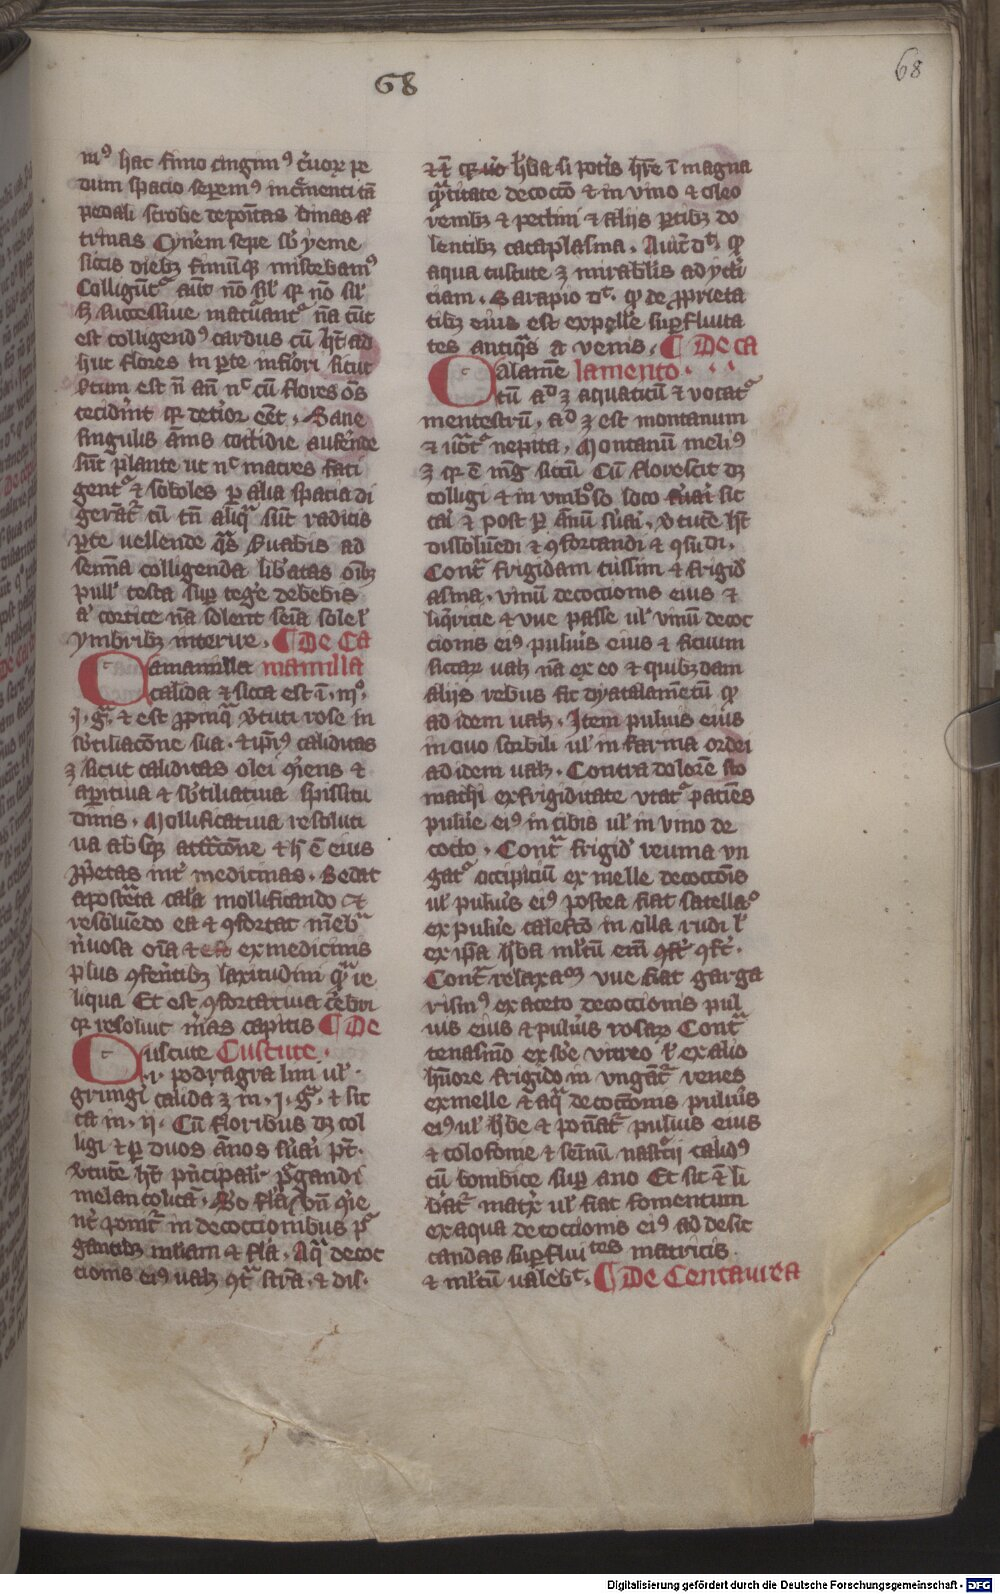 68
68
mꝰ hac fimo cingimꝰ
dum spacio
pedali scrobe deponētas binas aut
trinas Cynerem sepe sub yeme
siccis diebꝫ fimūqꝫ miscebamꝰ
Colligūt͛ aūt nō sil' qꝛ nō sil'
successiue maturant͛ nā tūc
est colligendꝰ cardus cū hēt ad
huc flores in ꝑte inferiori sicut
dictum est cū flores oēs
qꝛ detior eēt . Sane
singulis annis cottidie auferende
sūt plante ut nͨ matres fati
gent͛ & soboles ꝑ alia spatia di
gerāt͛ cū tn̄ aliqͣ sūt radicis
ꝑte uellende qͣs suabis ad
semīa colligenda libatas oībꝫ
pull' testa suꝑ tegere debebis
cortice nā solent seīa sole l'
ymbribꝫ interire . ¶ De Ca
Camamilla mamilla
calida & sicca est ī . pͦ.
.j. gͣ. & est ꝓpinqͣ vtuti rose in
subtiliacōne sua . & ipīꝰ caliditas
ꝫ sicut caliditas olei &
aꝑitiua & subtiliatiua spissitu
dinis . Mollificatiua resoluti
ua absqꝫ attractōne & h' ē eius
ꝓp̄etas int' medicinas . Sedat
apostēta calā mollificando &
resoluēdo ea & ꝯfortat mēbͣ
neruosa oīa & est ex medicinis
plus ꝯferētibꝫ laxitudini qͣ re
liqua Et est ꝯfortatiua cerebri
qꝛ resoluit mās capitis ¶ De
Cuscute Cuscute .
.i. podragra lini ul' .
grungi calida ꝫ in . j . gͣ. & sic
ca in . ij . Cū floribus dꝫ col
ligi & ꝑ duos ānos suāi pt̄.
vtutē hꝫ pⁱncipalit' pͥgandi
melancolicā . Sͦ flā
ponit͛ in decoccionibus pͥ
gantibꝫ & flā . Aqͣ decoc
tionis eiꝰ ualꝫ strā . & dis .
qꝛ ūo h'ba si potis hr̄e ī magna
qͣntitate decoctō & in vino & oleo
renibꝫ & pectini & alijs ꝑtibꝫ do
lentibꝫ cataplasma . Auic̄ dt̄ ꝙ
aqua cuscute ꝫ mirablis ad yctͥ
ciam . Sarapio dͨ. ꝙ de ꝓprieta
tibꝫ eius est expellere suꝑfluita
tes antiqͣs a venis . ¶ De ca
Calamē lamento . . .
tū aꝫ ꝫ aquaticū & vocat͛
mentestrū . ad ꝫ est montanum
& uōt͛ nepita . Montanū meliꝰ
ꝫ qꝛ ē mgͥ siccū Cū florescit dꝫ
colligi & in vmbͦso loco suāi sic
cāi & post ꝑ ānū suāi . vtutē hꝫ
dissoluēdi & ꝯfortandi & ꝯsūdi .
Contͣ frigidam tussim & frigid'
asma . vinū decoccionis eius &
liqͥritie & vue passe ul' vinū decoc
cionis eiꝰ puluis eius & ficuum
siccar ualꝫ nā ex eo & quibꝫdam
alijs rebus fit dyacalametū ꝙ
ad idem ualꝫ . Item puluis eius
in ouo sorbili ul' in farina ordei
ad idem ualꝫ . Contra dolorē sto
machi ex frigiditate vtat͛ paciēs
puluē eiꝰ in cibis ul' in vino de
cocto . Contͣ frigid' reuma vn
gat͛ occipiciū ex melle decoccōis
ul' puluis eiꝰ postea fiat satellaꝰ
ex puluē calefcō in olla rudi l'
ex ipa h'ba mltū eni̅ ꝯfert .
Contͣ relaxaoꝫ vue fiat garga
rismꝰ ex aceto decoccionis pul
uis eius & puluis rosaꝝ Contͣ
tenasmō ex sbe vitreo l' ex alio
hūore frigido in vngāt͛ renes
ex melle & aqͣ decoctōnis puluis
eiꝰ ul' h'be & ponāt͛ puluis eius
& colofonie & semīnū nastͥcij calidꝰ
cū bombice suꝑ ano Et sic ī li
bat͛ matͥx ul' fiat fomentum
ex aqua decoccionis eiꝰ ad desic
candas suꝑfluitates matricis
& mltū ualebͥt . ¶ De Centaurea
Digitalisierung gefördert durch die Deutsche Forschungsgemeinschaft - DFG